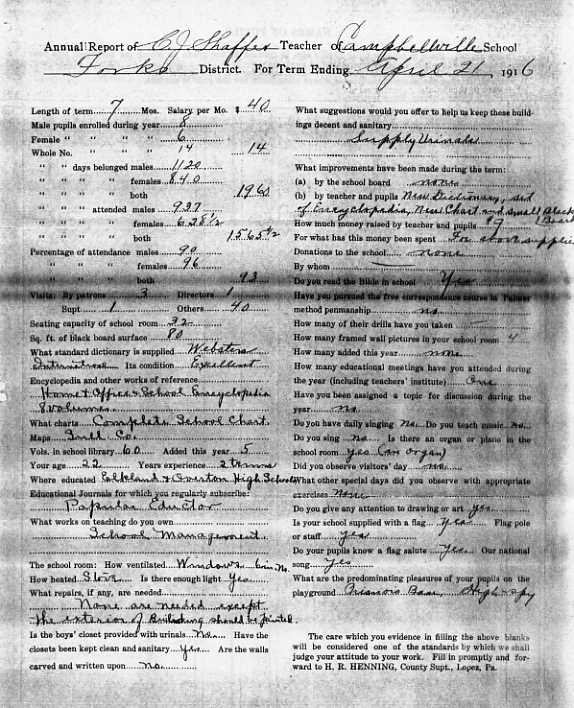 Annual Report of C. J. Shaffer Teacher of Campbellville School
Forks District. For Term Ending April 21, 1916
Length of term 7 Mos. Salary per Mo. $ 40
Male pupils enrolled during year 8
Female " " " 6
Whole No. " " " 14 14
" " days belonged males 1120
" " " " females 840
" " " " both 1960
" " " attended males 937
" " " " females 628½
" " " " both 1565½
Percentage of attendance males 90
" " " females 96
" " " both 93
Visits: By patrons 3 Directors 1
Supt 1 Others 40
Seating capacity of school room 32
Sq. ft. of black board surface 80
What standard dictionary is supplied Websters
Its condition Excellent
Encyclopedia and other works of reference
Home & Office & School Encyclopedia
8 volumes
What charts Complete School Chart
Maps Co.
Vols. in school library 60 Added this year 5
Your age 22 Years experience 2 terms
Where educated Elkland & Overton High Schools
Educational Journals for which you regularly subscribe:
Popular Eductor
What works on teaching do you own
School Management
The school room: How ventilated Windows
How heated Stove Is there enough light Yes
What repairs, if any, are needed
None are needed except
the exterior of Building should be painted
Is the boys' closet provided with urinals No Have the
closets been kept clean and sanitary Yes Are the walls
carved and written upon no
What suggestions would you offer to help us keep these build-
ings decent and sanitary
Supply Urinals
What improvements have been made during the term:
(a) by the school board none
(b) by teacher and pupils New Dictionary, set
of Encyclopedia, New Chart and small Black
Board
How much money raised by teacher and pupils $9
For what has this money been spent For above supplies
Donations to the school none
By whom
Do you read the Bible in school Yes
Have you pursued the free correspondence course in Palmer
method penmanship no
How many of their drills have you taken
How many framed wall pictures in your school room 4
How many added this year none
How many educational meetings have you attended during
the year (including teachers' institute) One
Have you been assigned a topic for discussion during the
year No
Do you have daily singing No Do you teach music no
Do you sing no Is there an organ or piano in the
school room yes (an organ)
Did you observe visitors' day no
What other special days did you observe with appropriate
exercises none
Do you give any attention to drawing or art yes
Is your school supplied with a flag Yes Flag pole
or staff yes
Do your pupils know a flag salute Yes Our national
song Yes
What are the predominating pleasures of your pupils on the
playground Prisoners Base,
The care which you evidence in filling the above blanks
will be considered one of the standards by which we shall
judge your attitude to your work. Fill in promptly and for-
ward to H. R. HENNING, County Supt., Lopez, Pa.